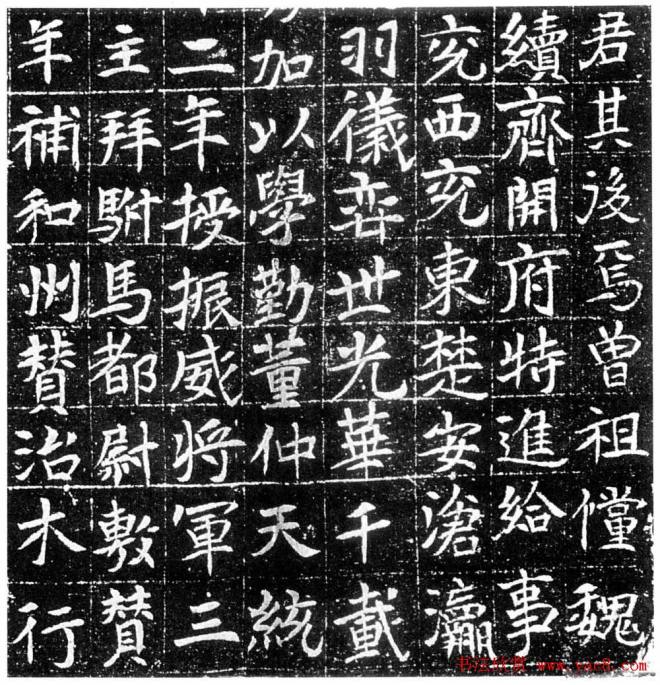 君其後焉曾祖儻魏
續齊開府特進給事
兖西兖東楚安滄瀛
羽儀弈世光華千載
加以學勤董仲天統
二年授振威將軍三
主拜駙馬都尉敷贊
年補和州贊治木行
书法欣赏 www.yac8.com